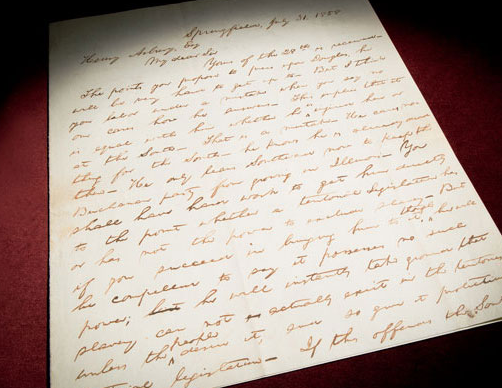 Springfield, July 31, 1858
Henry Asbury, Esq
My dear Sir Yours of the 28th is received.
The points you propose to press upon Douglas, he
will be very hard to get up to. But I think
you labor under a mistake when you say no
one cares how he answers. This implies that it
is equal with him whether he is injured here or
at the South. That is a mistake. He cares no-
thing for the South— he knows he is already dead
there. He only leans Southward now to keep the
Buchanan party from growing in Illinois. You
shall have hard work to get him directly
to the point whether a territorial Legislature has
or has not the power to exclude slavery. But
if you succeed in bringing him to it, though he will
be compelled to say it possesses no such
power; he will instantly take ground that
slavery can not actually exist in the territories,
unless the people desire it, and so give it protective
legislation— If this offends the Sou